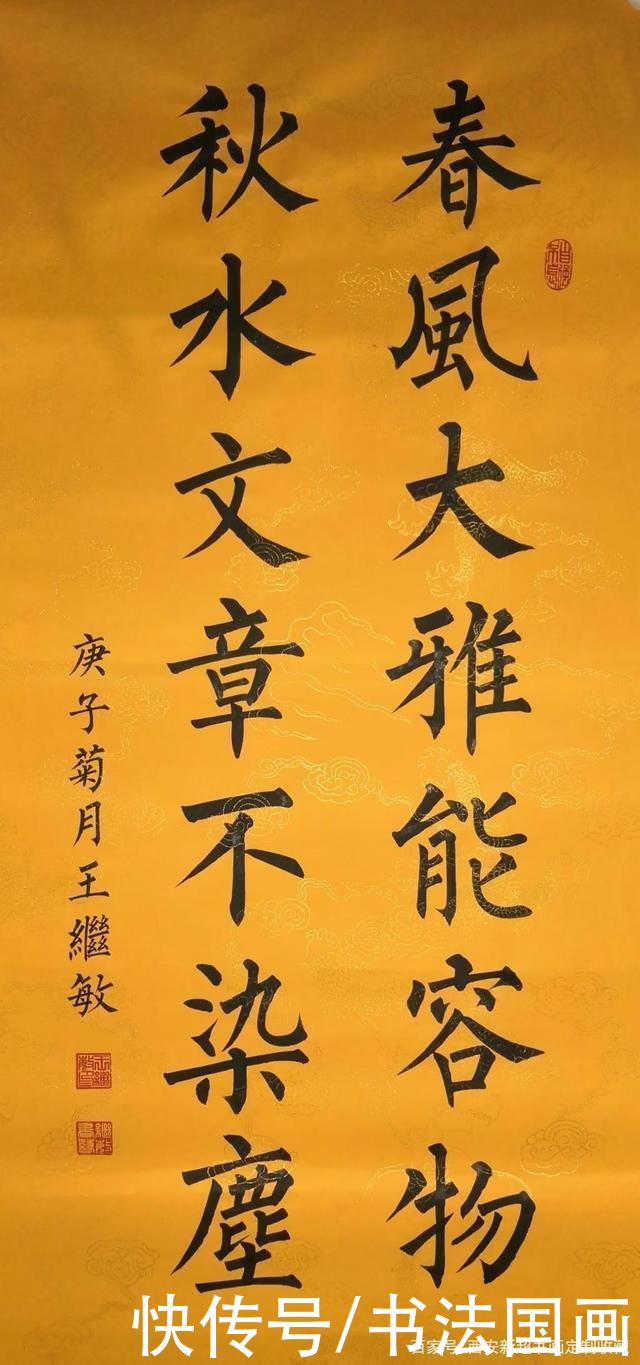 春風大雅能容物
秋水文章不染塵
庚子菊月王繼敏
快传号/书法国画